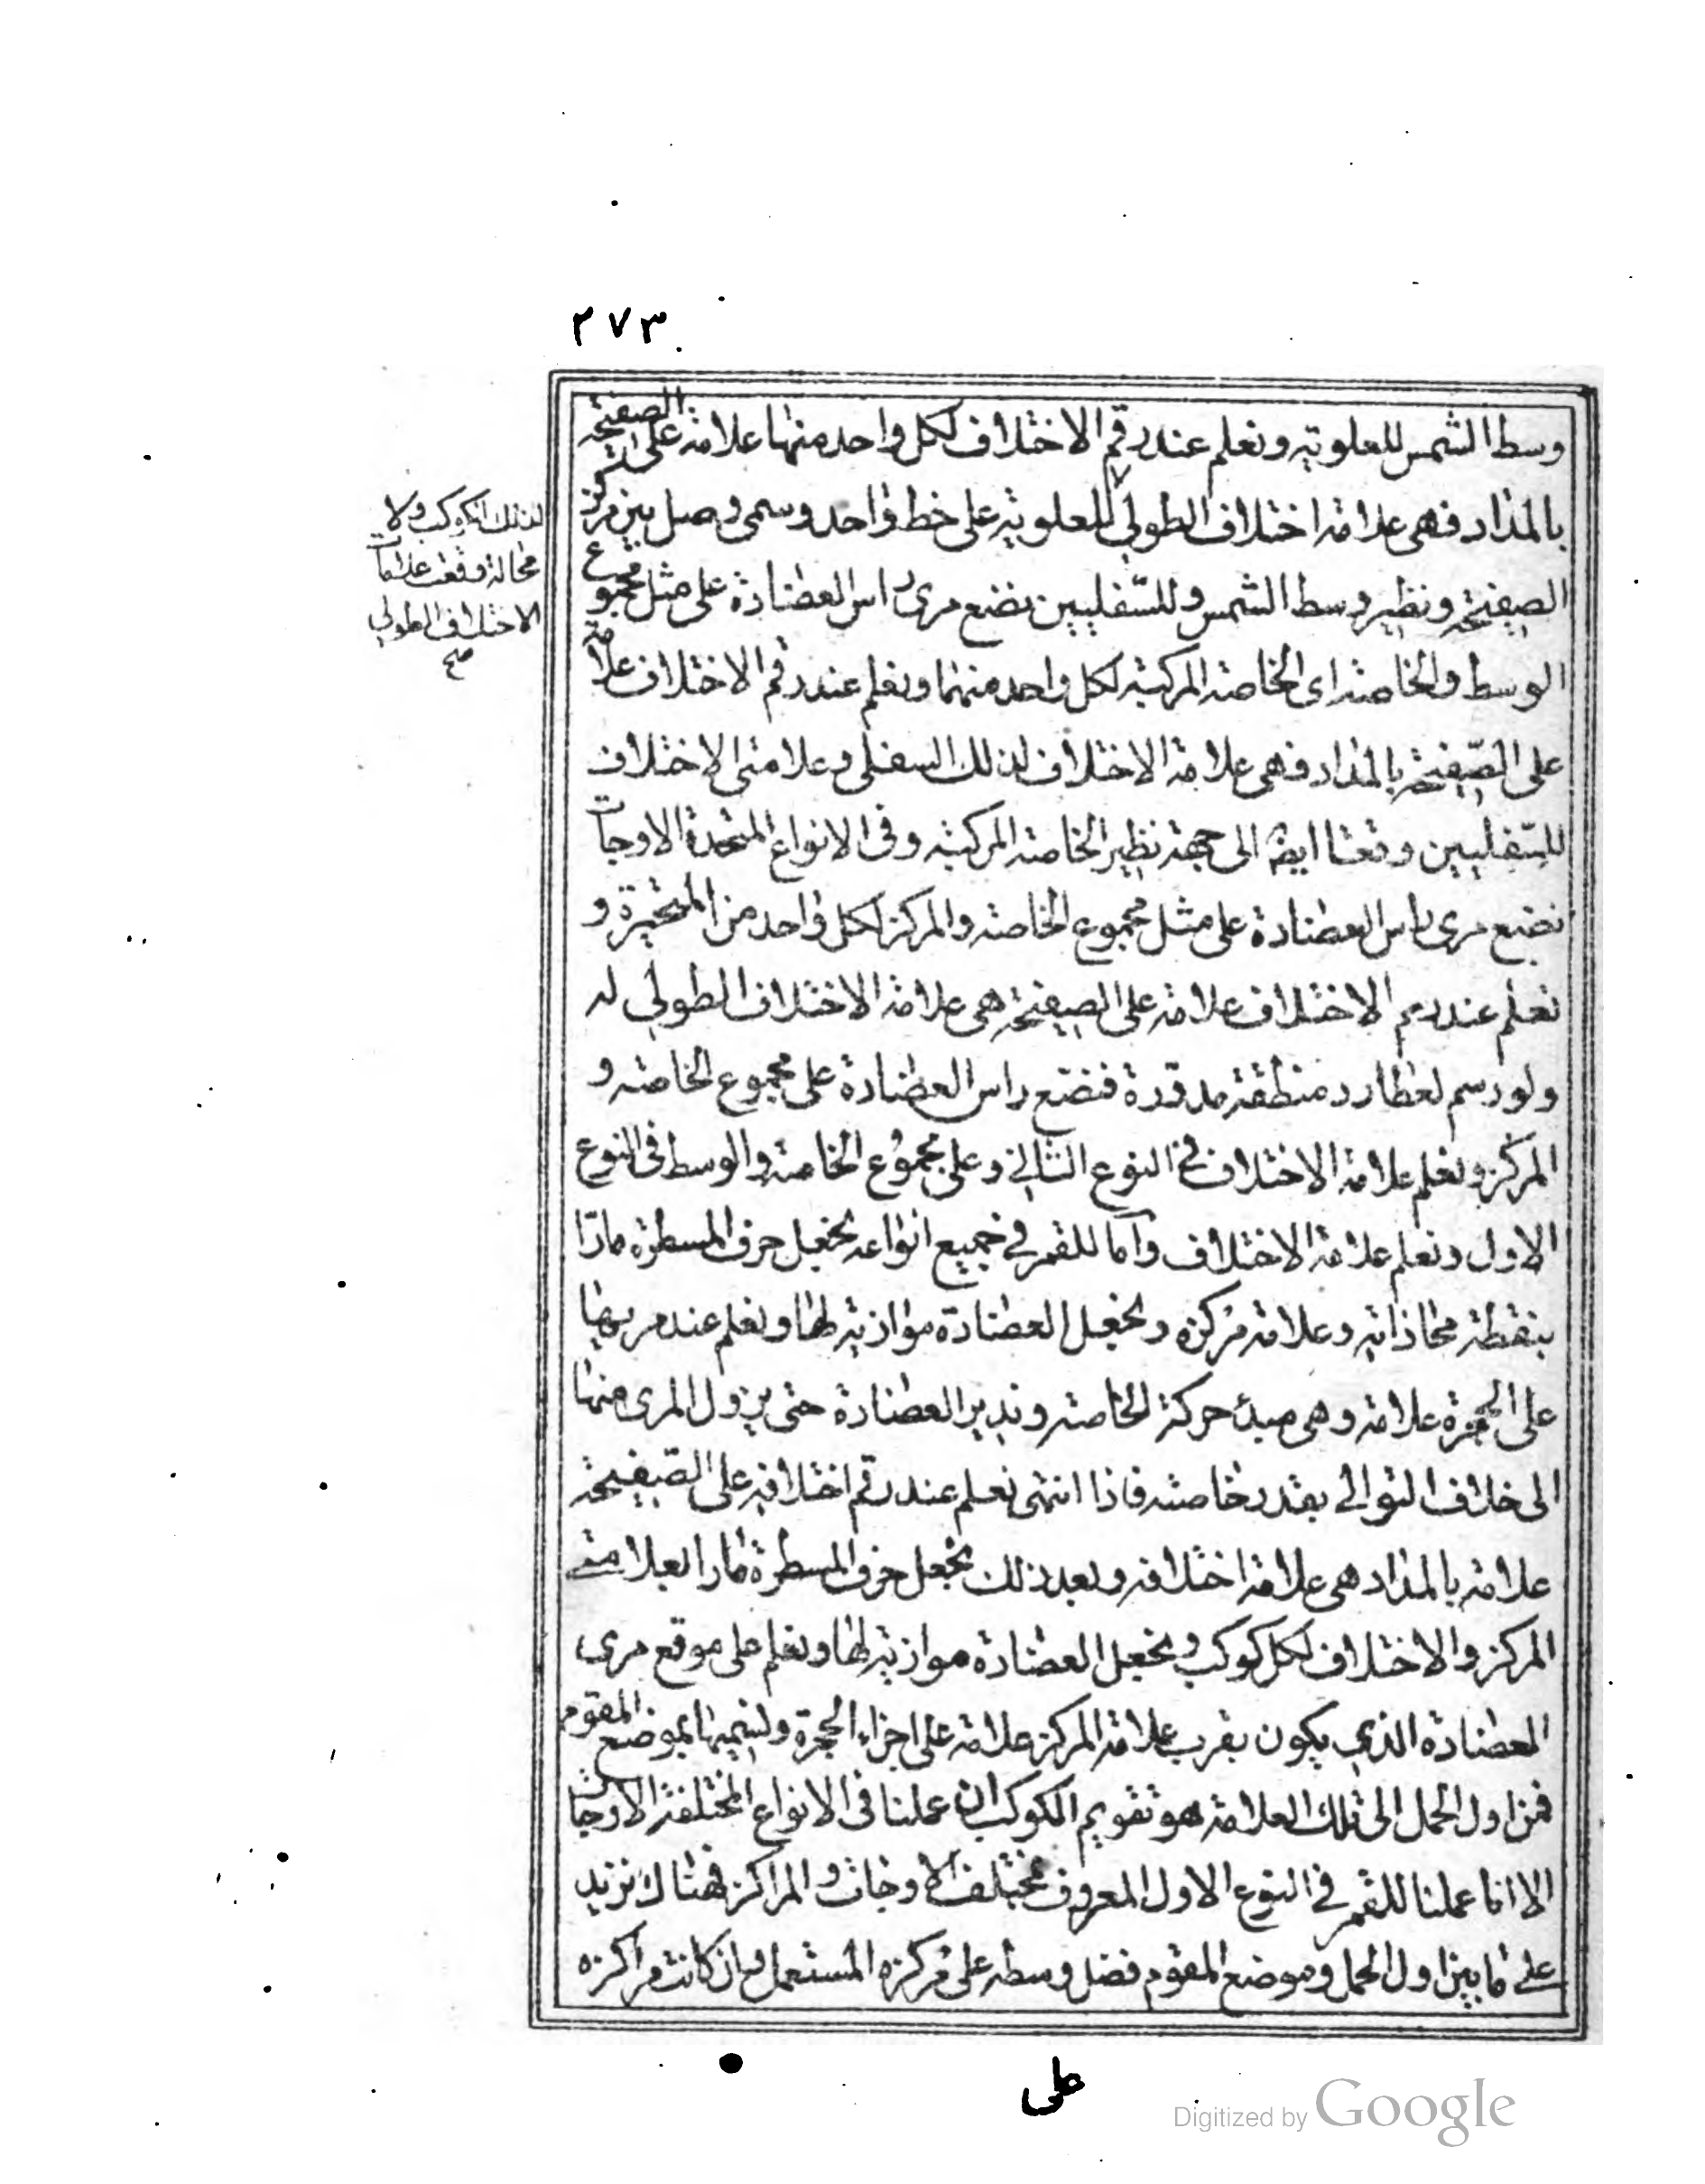 ٢٧٣
وسط الشمس للعلوية ونعلم عند رقم الاختلاف لكل واحد منها علامة على الصفيحة
بالمداد فهي علامة اختلاف الطولي للعلوية على خط واحد وسمى وصل بين مركز
الصفيحة ونظير وسط الشمس وللسفليين نضع مرى راس العضادة على مثل مجموع
الوسط والخاصة اى الخاصة المركبة لكل واحد منهما ونعلم عند رقم الاختلاف علامة
على الصّفيحة بالمداد فهى علامة الاختلاف لذلك السفلى وعلامتى الاختلاف
للسّفليين وقعتا ايضا الى جهة نظير الخاصة المركبة وفى الانواع المتحدة الاوجات
نضع مرى راس العضادة على مثل مجموع الخاصة والمركز لكل واحد من المتحيرة و
نعلم عند رقم الاختلاف علامة على الصفيحة هى علامة الاختلاف الطولي له
ولو رسم لعطارد منطقة مدوّرة فنضع راس العضادة على مجموع الخاصة و
المركز ونعلم علامة الاختلاف في النوع الثاني وعلى مجموع الخاصة والوسط فى النوع
الاول ونعلم علامة الاختلاف واما للقمر في جميع انواعه نجعل حرف المسطرة مارّا
بنقطة محاذاته وعلامة مركزه ونجعل العضادة موازية لها ونعلم عند مريها
على الحجرة علامة وهى مبدء حركة الخاصة وندير العضادة حتى يزول المرى منها
الى خلاف التوالي بقدر خاصته فاذا انتهى نعلم عند رقم اختلافه على الصّفيحة
علامة بالمداد هى علامة اختلافه وبعد ذلك نجعل حرف المسطرة مارا بعلامتي
المركز والاختلاف لكل كوكب ونجعل العضادة موازية لها ونعلم على موقع مرى
العضادة الذي يكون بقرب علامة المركز علامة على اجزاء الحجرة ونسميها بموضع المقوم
فمن اول الحمل الى تلك العلامة هو تقويم الكوكب ان عملنا فى الانواع المختلفة الاوجات
الا انا عملنا للقمر في النوع الاول المعروف بمختلف الاوجات والمراكز فهناك نزيد
على ما بين اول الحمل وموضع المقوم فضل وسطه على مركزه المستعمل وان كانت مراكزه
على
لذلك الكوكب ولا
محالة وقعت علامات
الاختلاف الطولي
صح
Digitized by Google